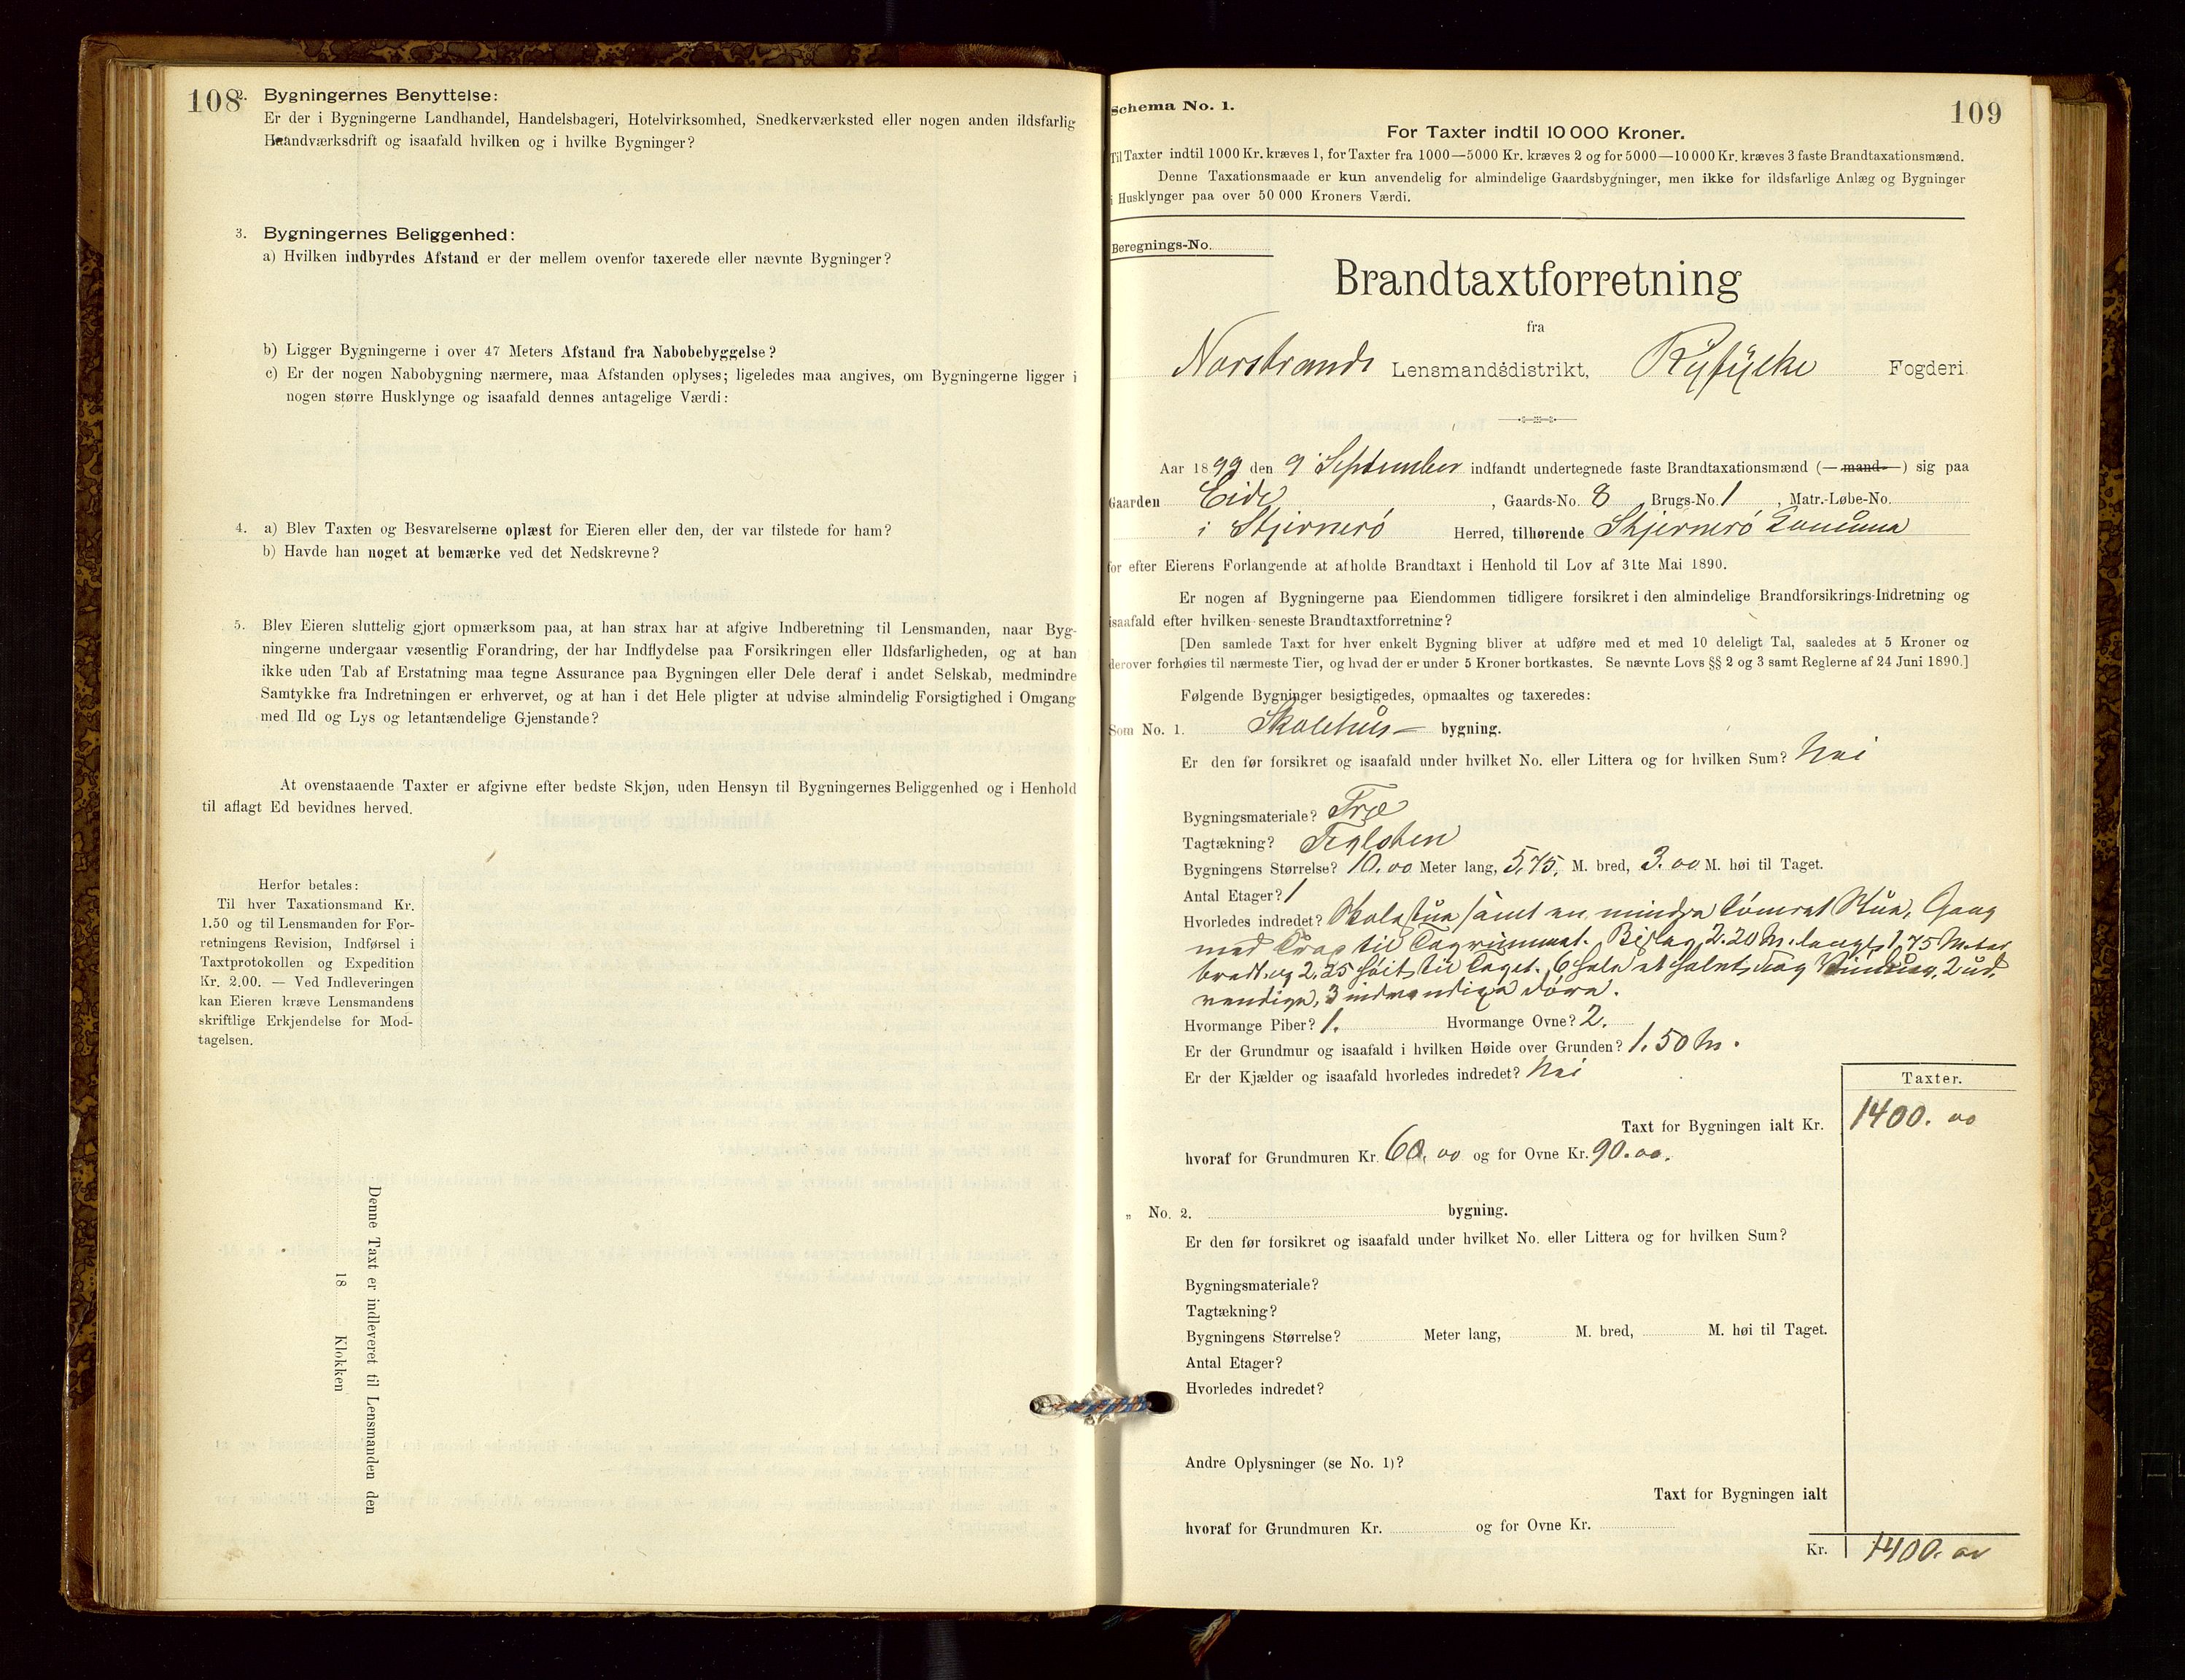 108
2. Bygningernes Benyttelse:
Er der i Bygningerne Landhandel, Handelsbageri, Hotelvirksomhed, Snedkerværksted eller nogen anden ildsfarlig
Haandværksdrift og isaafald hvilken og i hvilke Bygninger?
3. Bygningernes Beliggenhed:
a) Hvilken indbyrdes Afstand er der mellem ovenfor taxerede eller nævnte Bygninger?
b) Ligger Bygningerne i over 47 Meters Afstand fra Nabobebyggelse?
c) Er der nogen Nabobygning nærmere, maa Afstanden oplyses; ligeledes maa angives, om Bygningerne ligger i
nogen større Husklynge og isaafald dennes antagelige Værdi:
4. a) Blev Taxten og Besvarelserne oplæst for Eieren eller den, der var tilstede for ham?
b) Havde han noget at bemærke ved det Nedskrevne?
5. Blev Eieren sluttelig gjort opmærksom paa, at han strax har at afgive Indberetning til Lensmanden, naar Byg-
ningerne undergaar væsentlig Forandring, der har Indflydelse paa Forsikringen eller Ildsfarligheden, og at han
ikke uden Tab af Erstatning maa tegne Assurance paa Bygningen eller Dele deraf i andet Selskab, medmindre
Samtykke fra Indretningen er erhvervet, og at han i det Hele pligter at udvise almindelig Forsigtighed i Omgang
med Ild og Lys og letantændelige Gjenstande?
At ovenstaaende Taxter er afgivne efter bedste Skjøn, uden Hensyn til Bygningernes Beliggenhed og i Henhold
til aflagt Ed bevidnes herved.
Herfor betales:
Til hver Taxationsmand Kr.
1.50 og til Lensmanden for For-
retningens Revision, Indførsel i
Taxtprotokollen og Expedition
Kr. 2.00. — Ved Indleveringen
kan Eieren kræve Lensmandens
skriftlige Erkjendelse for Mod-
tagelsen.
Denne Taxt er indleveret til Lensmanden den
18 Klokken
109
Schema No. 1.
For Taxter indtil 10 000 Kroner.
Til Taxter indtil 1000 Kr. kræves 1, for Taxter fra 1000—5000 Kr. kræves 2 og for 5000—10 000 Kr. kræves 3 faste Brandtaxationsmænd.
Denne Taxationsmaade er kun anvendelig for almindelige Gaardsbygninger, men ikke for ildsfarlige Anlæg og Bygninger
i Husklynger paa over 50 000 Kroners Værdi.
Beregnings-No.
Brandtaxtforretning
fra
Norstrands Lensmandsdistrikt, Ryfylke Fogderi.
Aar 1899 den 9 September indfandt undertegnede faste Brandtaxationsmænd (— mand —) sig paa
Gaarden Eide, Gaards-No. 8, Brugs-No. 1, Matr.-Løbe-No.
i Stjernerö Herred, tilhørende Stjernerö Komune
for efter Eierens Forlangende at afholde Brandtaxt i Henhold til Lov af 31te Mai 1890.
Er nogen af Bygningerne paa Eiendommen tidligere forsikret i den almindelige Brandforsikrings-Indretning og
isaafald efter hvilken seneste Brandtaxtforretning?
[Den samlede Taxt for hver enkelt Bygning bliver at udføre med et med 10 deleligt Tal, saaledes at 5 Kroner og
derover forhøies til nærmeste Tier, og hvad der er under 5 Kroner bortkastes. Se nævnte Lovs §§ 2 og 3 samt Reglerne af 24 Juni 1890.]
Følgende Bygninger besigtigedes, opmaaltes og taxeredes:
Som No. 1. Skolehus- bygning.
Er den før forsikret og isaafald under hvilket No. eller Littera og for hvilken Sum? Nei
Bygningsmateriale? Træ
Tagtækning? Teglsten
Bygningens Størrelse? 10.00 Meter lang, 5,75, M. bred, 3.00 M. høi til Taget.
Antal Etager? 1
Hvorledes indredet? Skolestue samt en mindre tömret Stue, Gang
med Trap til Tagrummet. Bislag 2.20 M. langt, 1,75 Meter
bredt og 2,25 høit til Taget. 6 hele et halvt Fag Vinduer, 2 ud-
vendige, 3 indvendige døre.
Hvormange Piber? 1. Hvormange Ovne? 2.
Er der Grundmur og isaafald i hvilken Høide over Grunden? 1.50 M.
Er der Kjælder og isaafald hvorledes indredet? Nei
Taxter.
Taxt for Bygningen ialt Kr. 1400.00
hvoraf for Grundmuren Kr. 60.00 og for Ovne Kr. 90.00.
„ No. 2. bygning.
Er den før forsikret og isaafald under hvilket No. eller Littera og for hvilken Sum?
Bygningsmateriale?
Tagtækning?
Bygningens Størrelse? Meter lang, M. bred, M. høi til Taget.
Antal Etager?
Hvorledes indredet?
Andre Oplysninger (se No. 1)?
Taxt for Bygningen ialt
hvoraf for Grundmuren Kr. og for Ovne Kr.
Kr. 1400.00